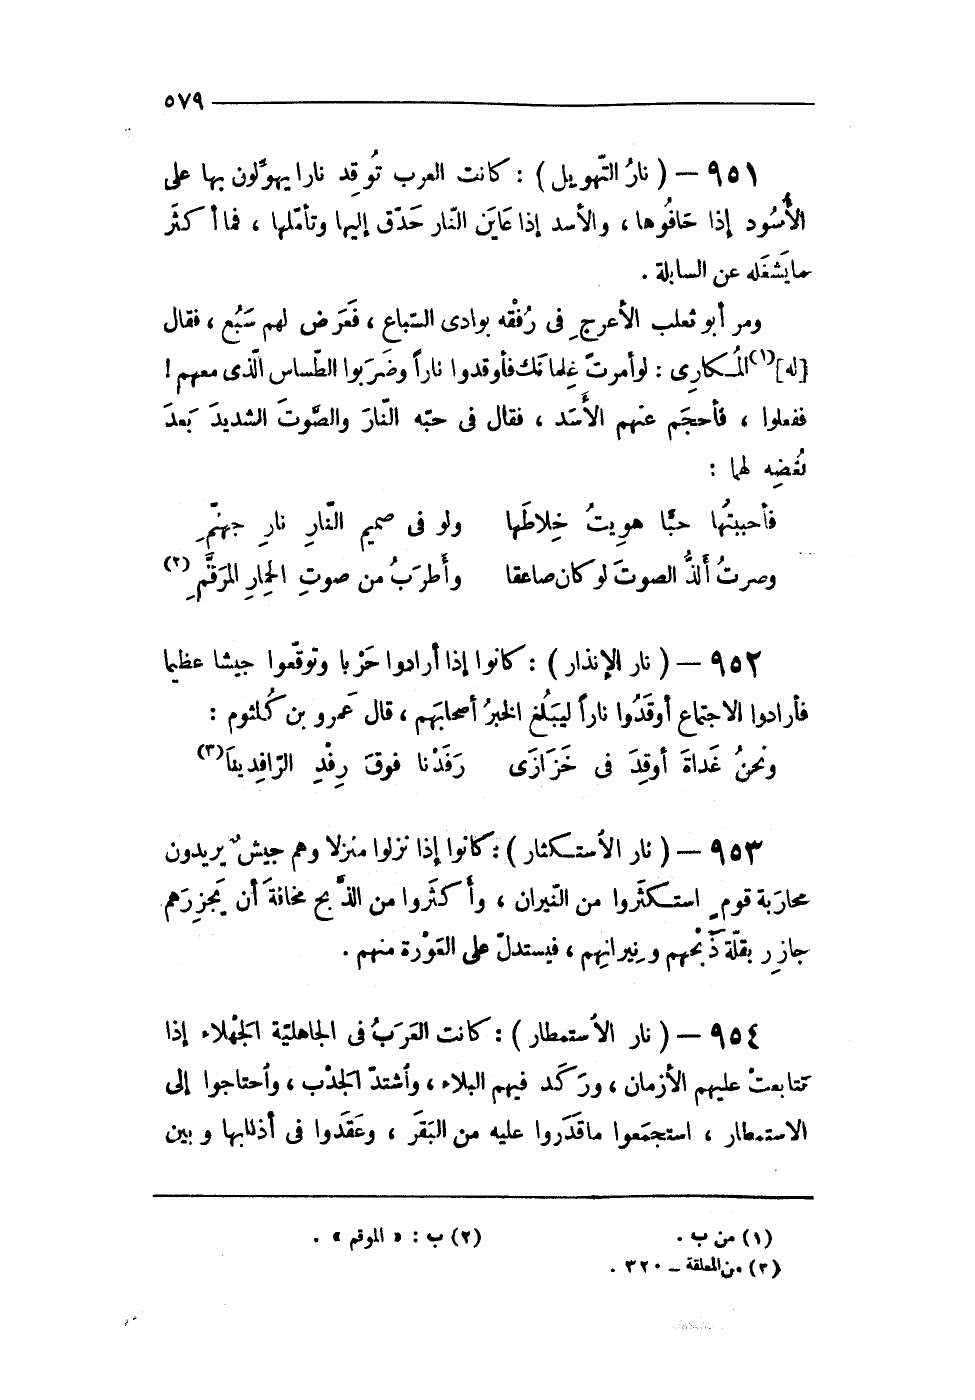 ٥٧٩
٩٥١ — ( نارُ التّهويل ) : كانت العرب تُوقِد نارا يهوِّلون بها على
الأُسُود إذا خَافُوها ، والأسد إذا عَايَن النّار حَدّق إليها وتأمّلها ، فما أكثَر
مايَشغَله عن السابلة .
ومر أبو ثعلب الأعرجِ فى رُفْقه بوادى السّباع ، فَعَرَض لهم سَبُع ، فقال
[له](١) المُـكارِى : لو أمرتَ غِلمانَك فأوقدوا ناراً وضَرَبوا الطّساس الّذى معهم !
ففعلوا ، فأحجَم عنهم الأَسَد ، فقال فى حبّه النّارَ والصَّوتَ الشديدَ بَعدَ
بُغضِه لها :
فأحببتُها حبًّا هوِيتُ خِلاطَها ولو فى صميم النّارِ نارِ جهنّمِ
وصرتُ أَلذُّ الصوتَ لو كان صاعقا وأَطرَبُ من صوتِ الحِمارِ المرَقَّمِ (٢)
٩٥٢ — ( نار الإنذار ) : كانوا إذا أرادوا حَرْبا وتوقّعوا جيشا عظيما
فأرادوا الاجتماع أوقَدُوا ناراً ليَبلُغ الخبرُ أصحابَهم ، قال عَمرو بن كُلثوم :
ونحنُ غَداةَ أوقِدَ فى خَزَازَى رَفَدْنا فوقَ رِفْدِ الرّافِدِينَا(٣)
٩٥٣ — ( نار الاُستـكثار ) : كانوا إذا نزلوا منزلا وهم جيشٌ يريدون
محاربَة قومٍ استـكثَروا من النّيران ، وأَكثَروا من الذَّبح مخافةَ أن يَجزِرَهم
جازِر بقلّة ذَبْحهم ونِيرانِهم ، فيستدلّ على العَوْرة منهم .
٩٥٤ — ( نار الاُستمطار ) : كانت العَرَبُ فى الجاهليّة الجَهْلاء إذا
تتابعتْ عليهم الأزمان ، ورَكَد فيهم البلاء ، وأشتدّ الجَدْب ، وأحتاجوا إلى
الاستمطار ، استجمَعوا ماقَدَروا عليه من البَقَر ، وعَقَدوا فى أذنابها وبين
(١) من ب . (٢) ب : « الموقم » .
(٣) من المعلقة ــ ٣٢٠ .